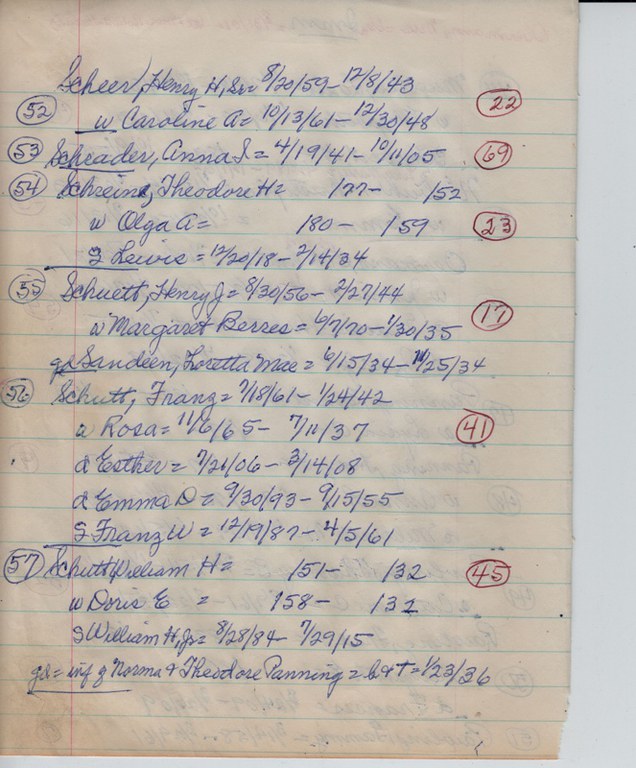 Scheer, Henry H, Sr = 8/20/59 - 12/8/43
52 w Caroline A = 10/13/61 - 12/30/48 22
53 Schrader, Anna S = 4/19/41 - 10/11/05 69
54 Schrein, Theodore H = 177 - 152
w Olga A = 180 - 159 23
S Lewis = 12/20/18 - 2/14/34
55 Schuett, Henry J = 8/30/56 - 2/27/44
w Margaret Berres = 6/7/70 - 1/30/35 17
gs Sandeen, Loretta Mae = 6/15/34 - 11/25/34
56 Schutt, Franz = 7/18/61 - 1/24/42
w Rosa = 11/6/65 - 7/11/37 41
d Esther = 7/21/06 - 3/14/08
d Emma D = 9/30/93 - 9/15/55
S Franz W = 12/19/87 - 4/5/61
57 Schutt William H = 151 - 132 45
w Doris E = 158 - 131
S William H, Jr = 8/28/84 - 7/29/15
gd = inf of Norma & Theodore Panning = b & T = 1/23/36